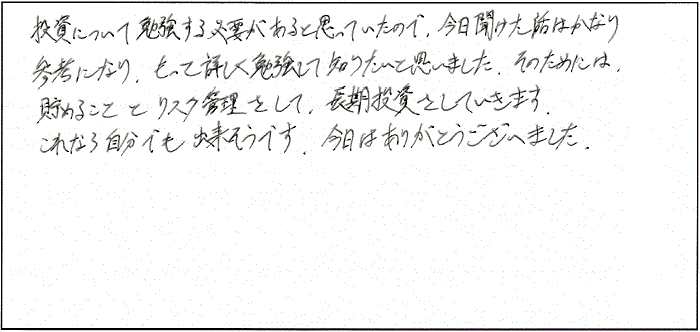 投資について勉強する必要があると思っていたので、今日聞けた話はかなり
参考になり、もっと詳しく勉強して知りたいと思いました。そのためには、
貯めることとリスク管理をして、長期投資をしていきます。
これなら自分でも出来そうです。今日はありがとうございました。